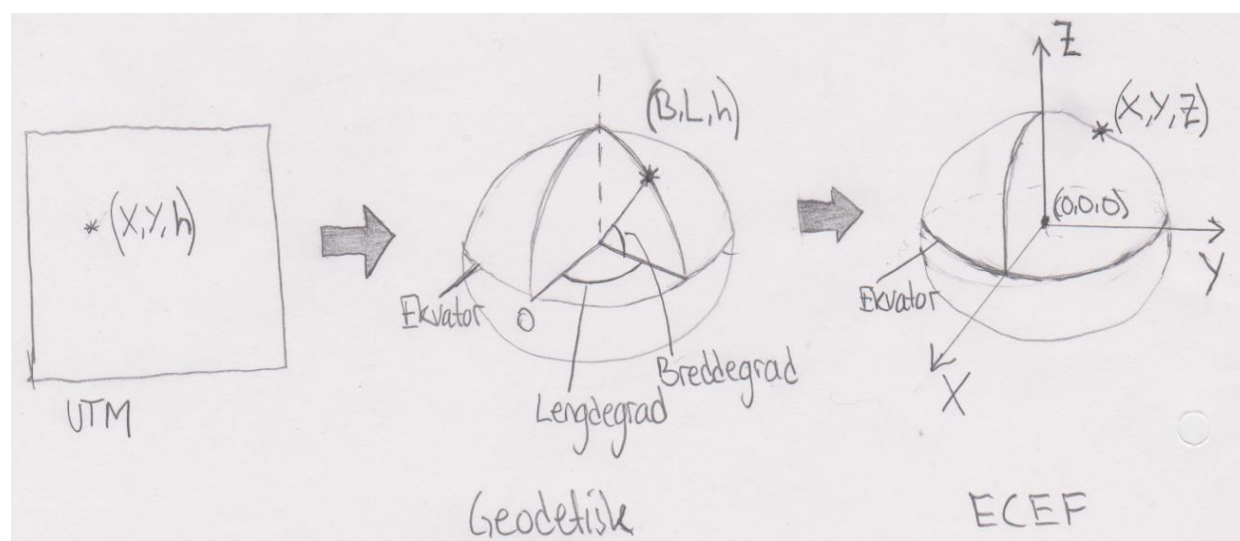 (X,Y,h)
UTM
(B,L,h)
Ekvator
O
Breddegrad
Lengdegrad
Geodetisk
Z
(X,Y,Z)
(0,0,0)
Y
Ekvator
X
ECEF